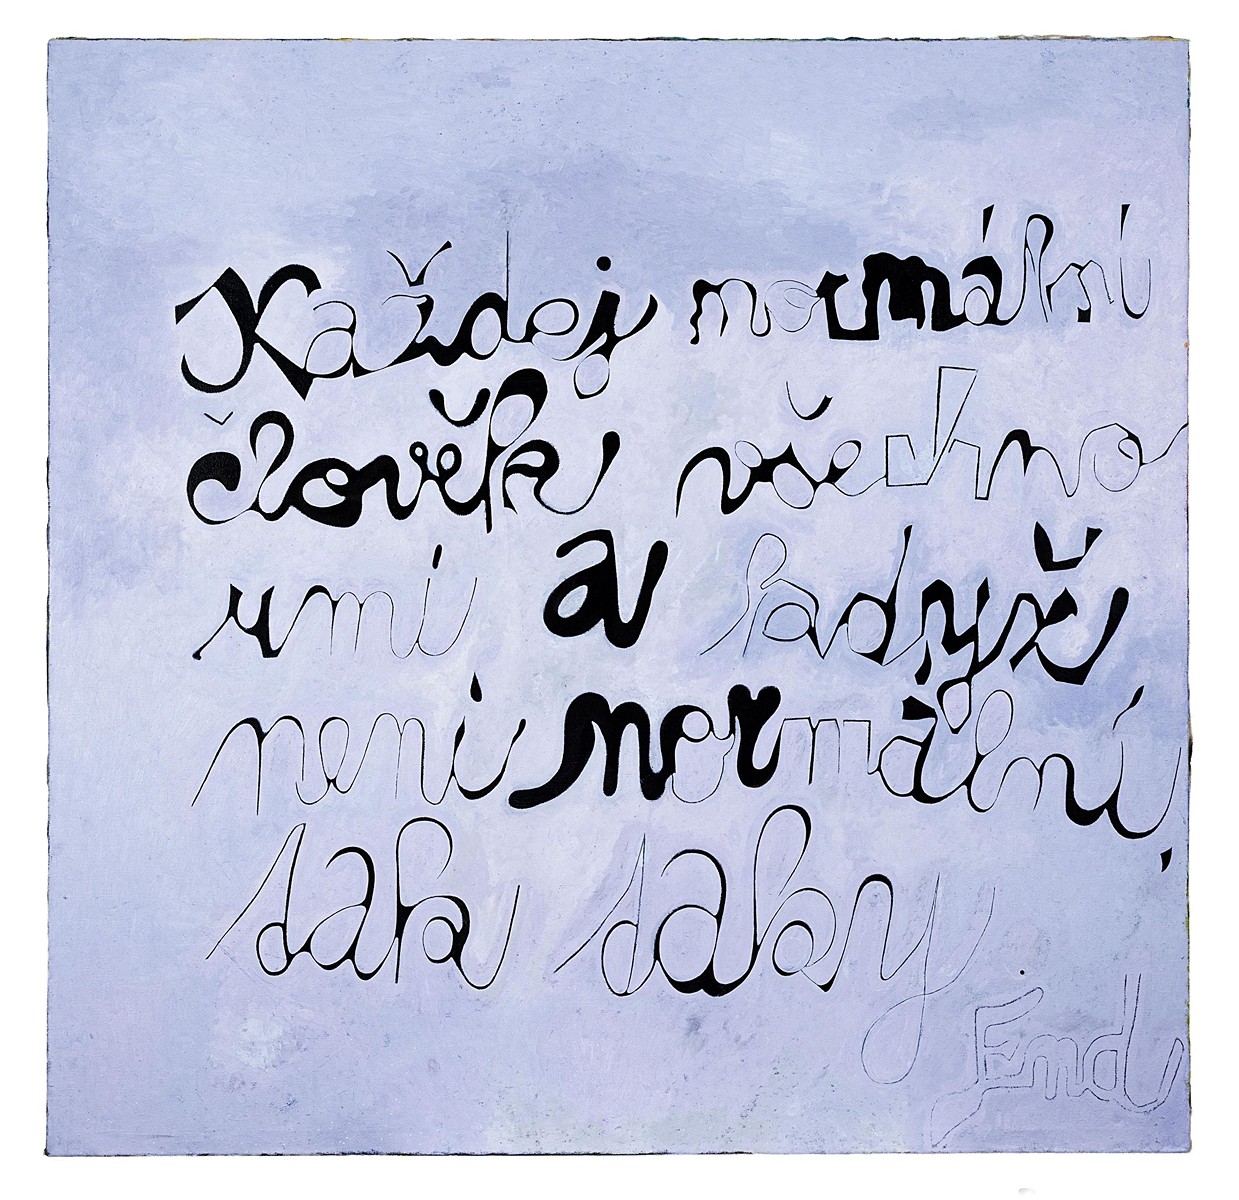 Každej normální
člověk všechno
umí a když
není normální,
tak taky.
End